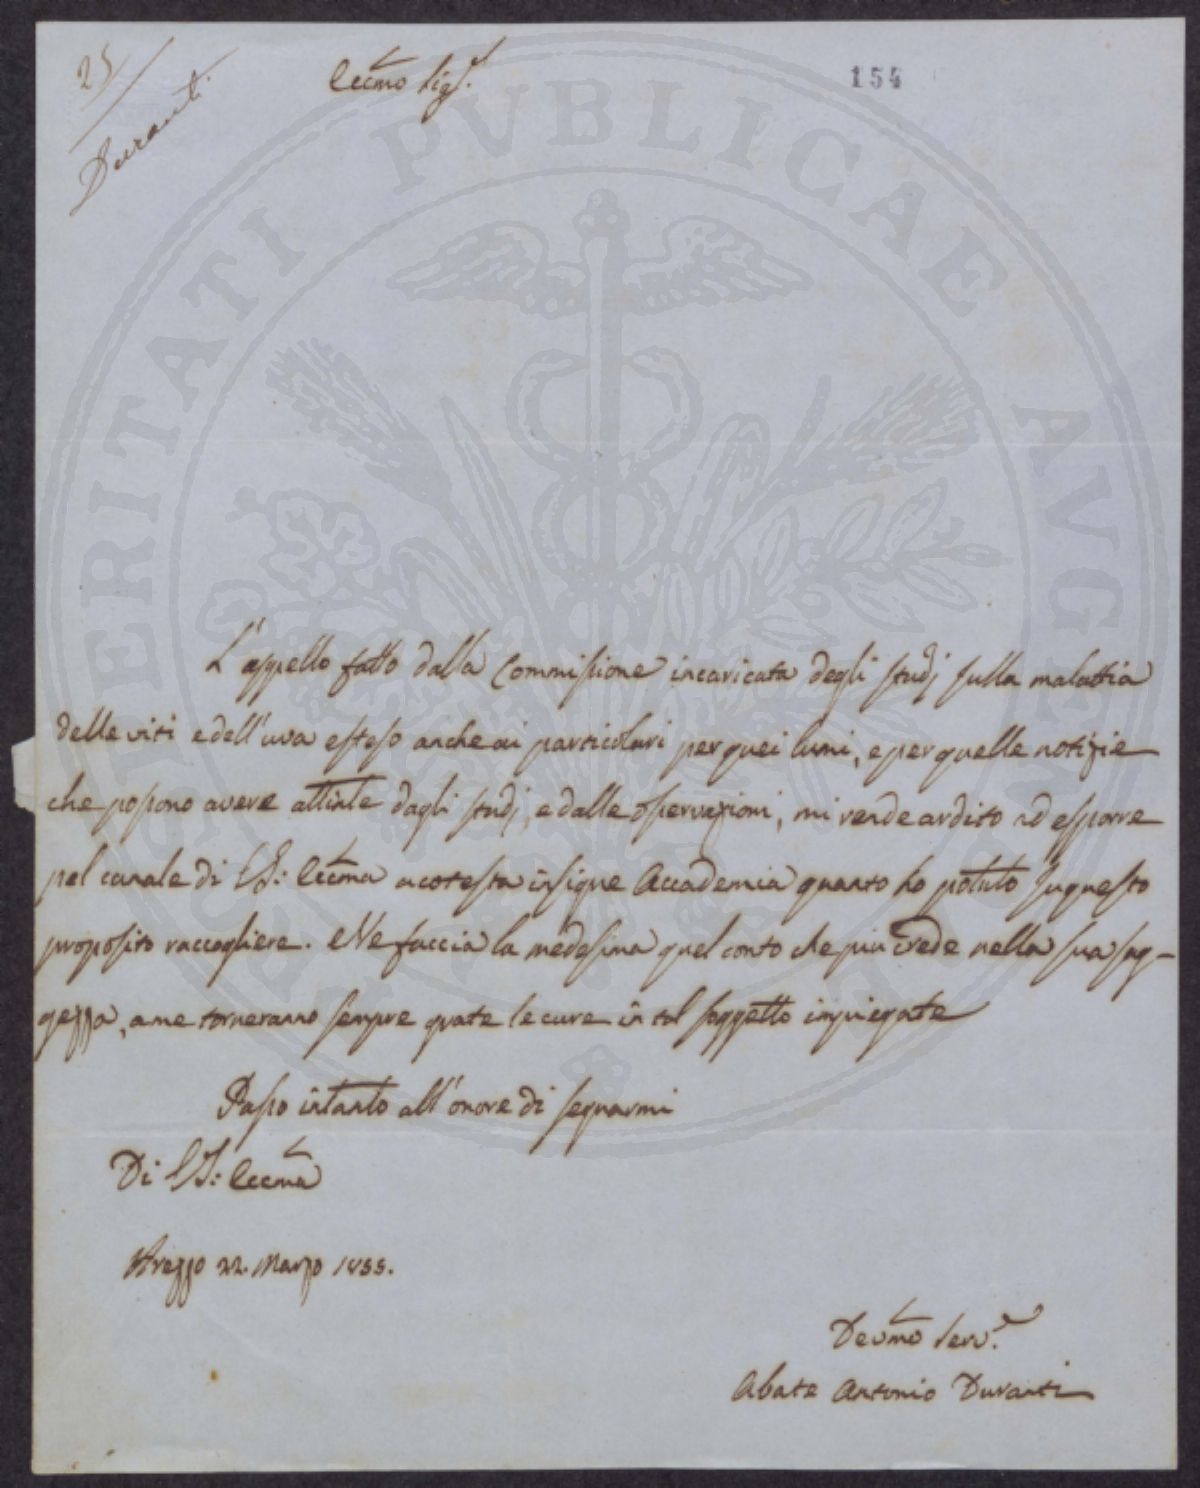 25
Duranti
Eccmo Sig.e
154
L'appello fatto dalla Commissione incaricata degli studj sulla malattia
delle viti e dell'uva esteso anche ai particolari per quei lumi, e per quelle notizie
che possono avere attinte dagli studj, e dalle osservazioni, mi rende ardito ad esporre
pel canale di V.S: Eccma a cotesta insigne Accademia quanto ho potuto su questo
proposito raccogliere. Ne faccia la medesima quel conto che più crede nella sua sag-
gezza, a me torneranno sempre grate le cure in tal soggetto impiegate
Passo intanto all'onore di segnarmi
Di V.S: Eccma
Arezzo 22. Marzo 1855.
Devmo Serv.e
Abate Antonio Duranti
PROSPERITATI PVBLICAE AVGENDAE